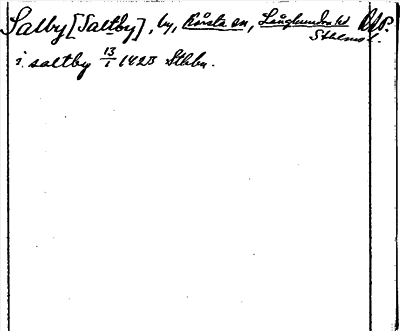 Salby [Saltby], by, Knista sn, Långhundra hd
Sthlms l.
i saltby 13/1 1423 Sthbr.